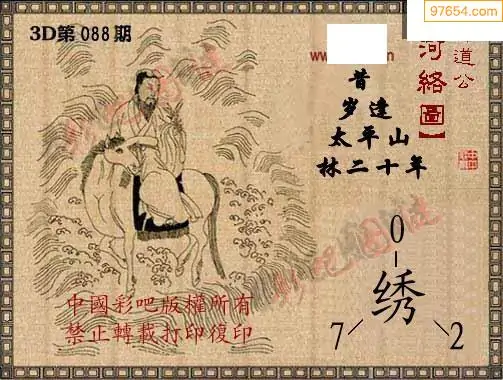 97654.com
3D第088期
www
道公
河络圖】
昔
岁逢
太平山
林二十年
彩吧图池
彩吧图池
0
绣
7
2
中國彩吧版權所有
禁止轉載打印復印